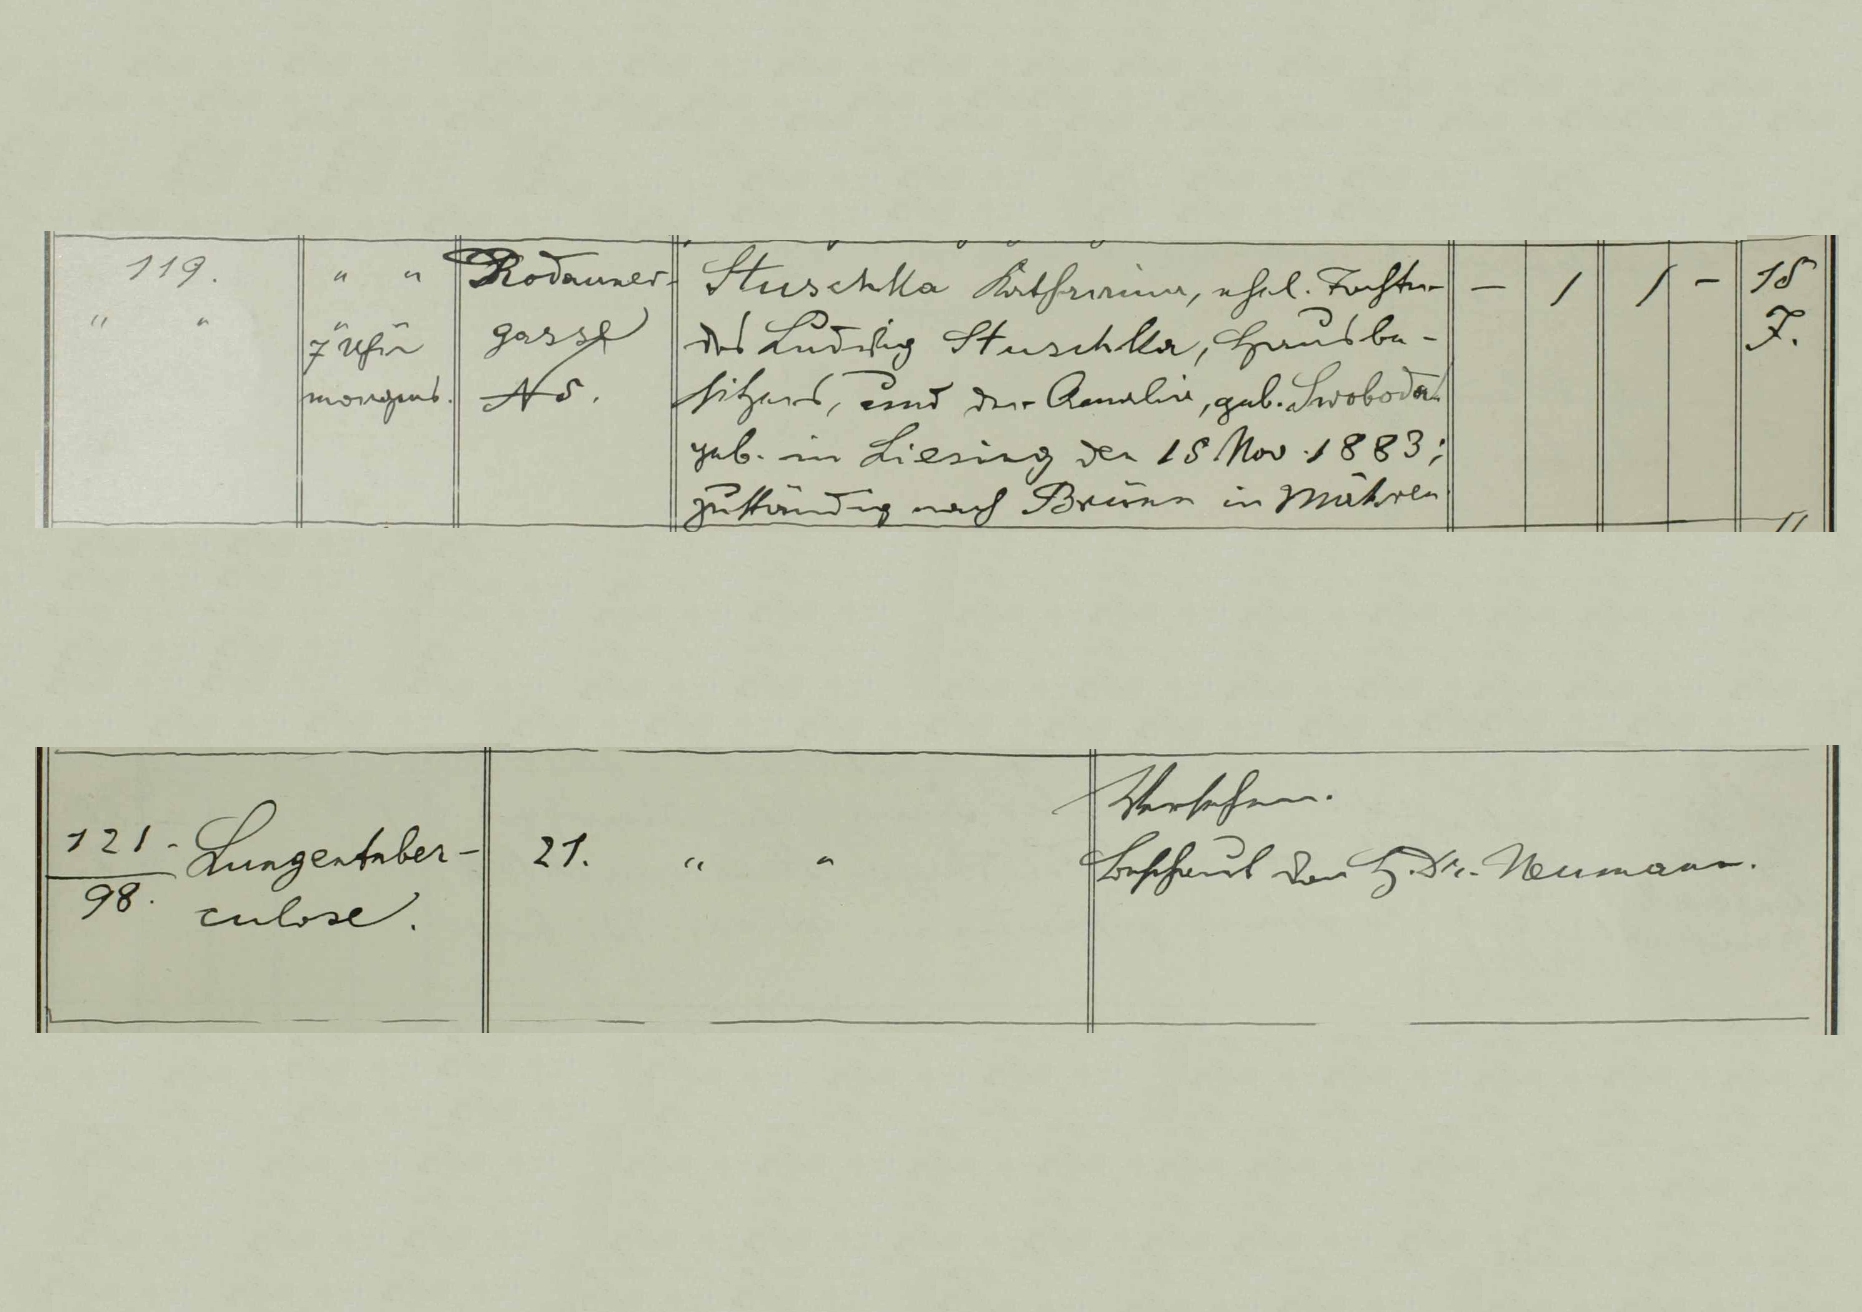 119.
" "
" "
" "
7 Uhr
morgens.
Rodauner-
gasse
N 5.
Stuschka Katharina, ehel. Tochter
des Ludwig Stuschka, Hausbe-
sitzers, und der Amalia, geb. Swoboda
geb. in Liesing den 15 Nov. 1883;
zuständig nach Brünn in Mähren
— 1 1 —
15
J.
121.
98.
Lungentuber-
culose.
21. " "
Versehen.
Beschaut von H. Dr. Neumann.